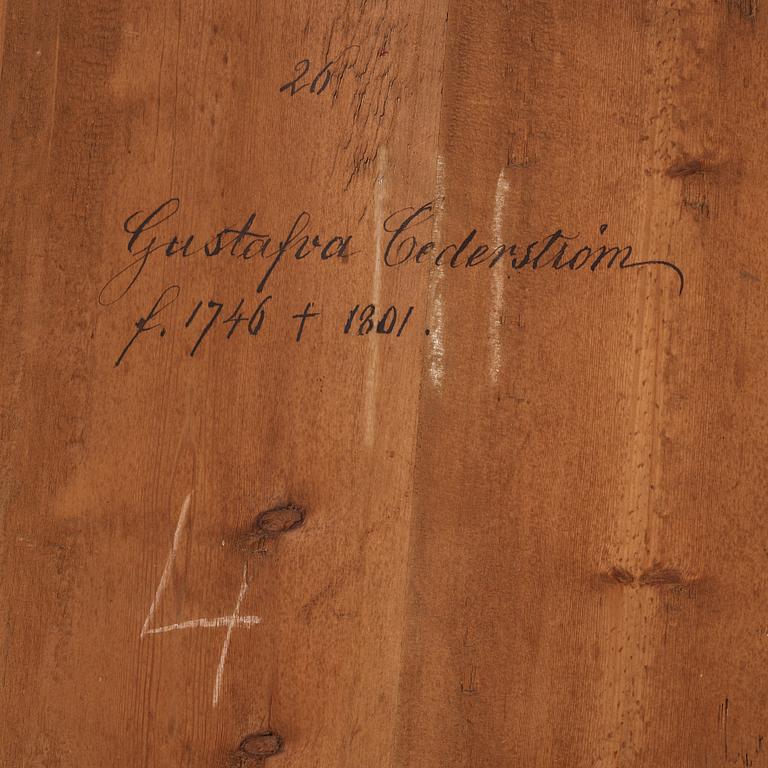 26
Gustafva Cederström
f. 1746 † 1801.
4